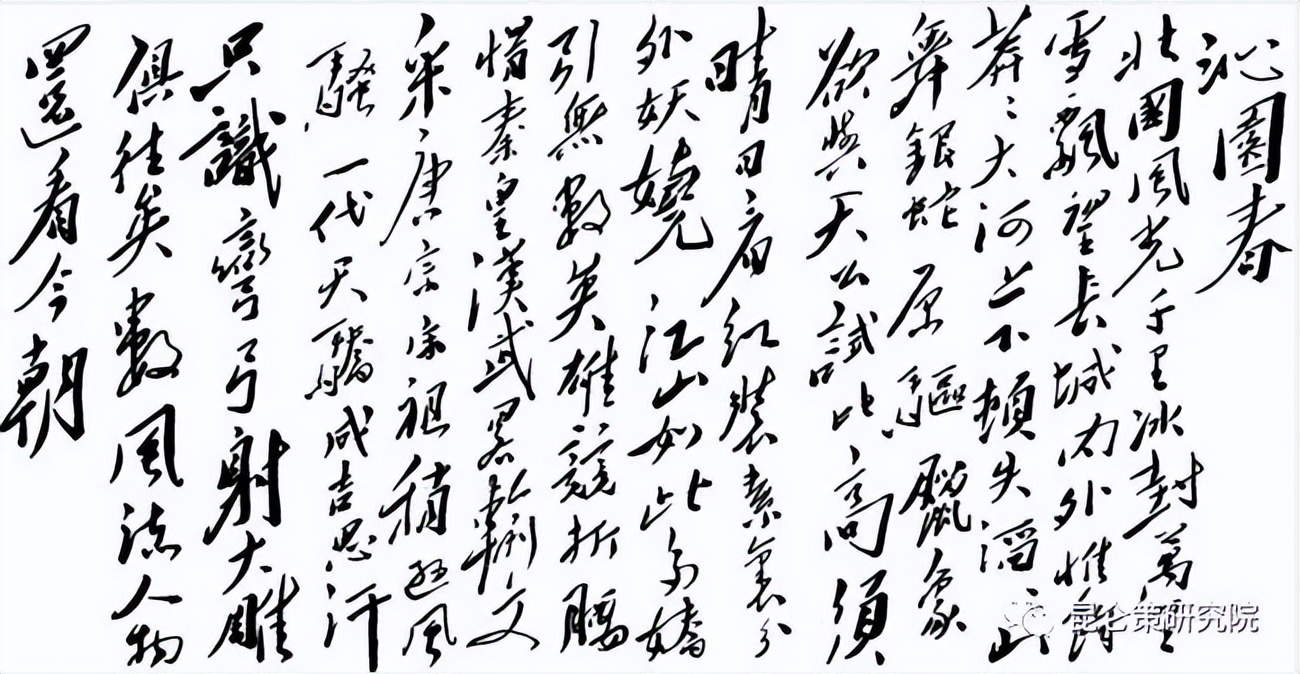 沁園春
北國風光千里冰封萬里
雪飄望長城内外惟餘
莽〻大河上下頓失滔〻山
舞銀蛇原驅臘象
欲與天公試比高須
晴日看紅裝素裹分
外妖嬈江山如此多嬌
引無數英雄競折腰
惜秦皇漢武略輸文
采唐宗宋祖稍遜風
騷一代天驕成吉思汗
只識彎弓射大雕
俱往矣數風流人物
還看今朝
昆仑策研究院